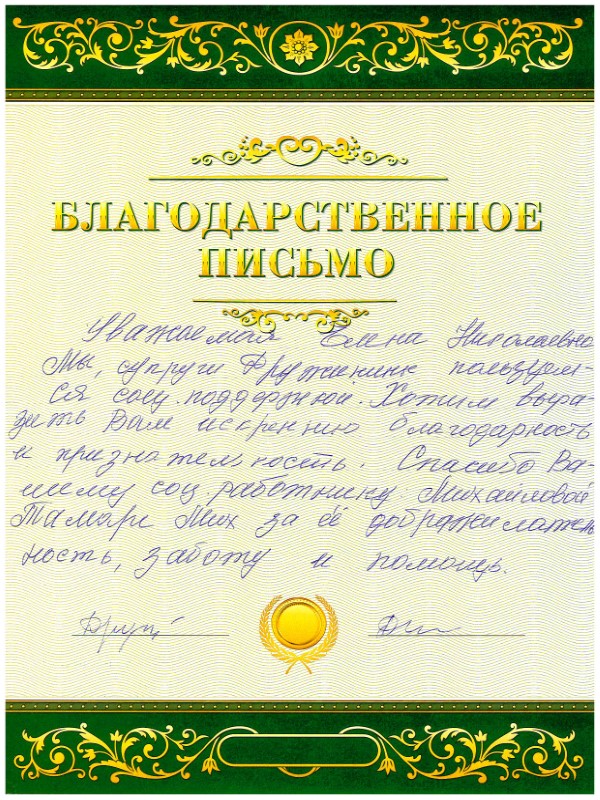 БЛАГОДАРСТВЕННОЕ
ПИСЬМО
Уважаемая Елена Николаевна
Мы, супруги Дружинины пользуем-
ся соц. поддержкой. Хотим выра-
зить Вам искреннию благодарность
и признательность. Спасибо Ва-
шему соц. работнику Михайловой
Тамаре Мих за её доброжилатель
ность, заботу и помощь.